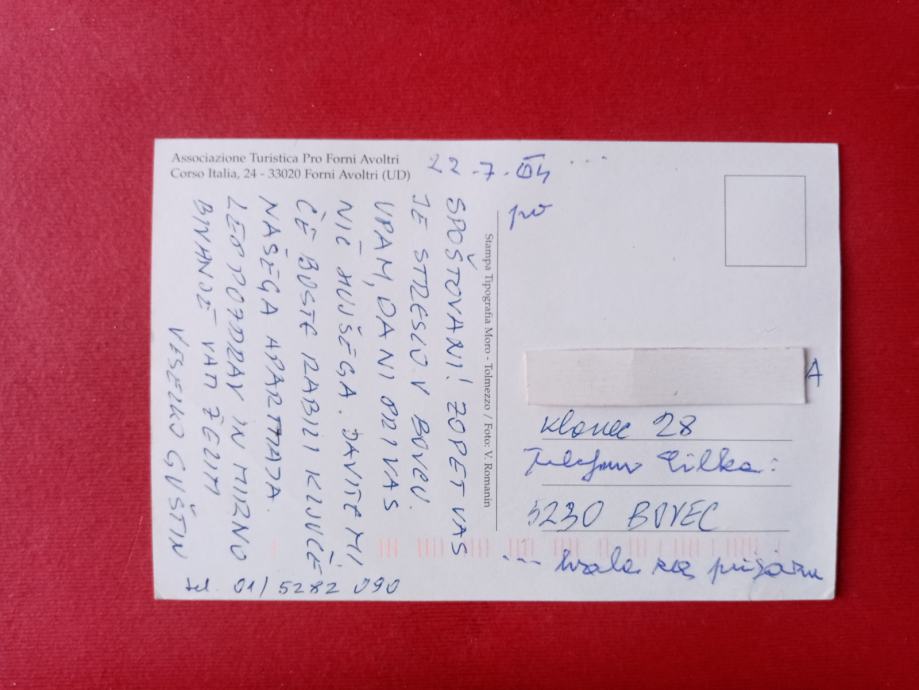 Associazione Turistica Pro Forni Avoltri
Corso Italia, 24 - 33020 Forni Avoltri (UD)
22.7.04 ...
SPOŠTOVANI! ZOPET VAS
JE STRESLO V BOVCU.
UPAM, DA NI PRI VAS
NIČ HUJŠEGA. JAVITE MI
ČE BOSTE RABILI KLJUČE
NAŠEGA APARTMAJA.
LEP POZDRAV IN MIRNO
BIVANJE VAM ŽELIM
VESELKO GUŠTIN
tel. 01/5282 090
Stampa Tipografia Moro - Tolmezzo / Foto: V. Romanin
po
A
Klanec 28
Telefon :
5230 BOVEC
... hvala za